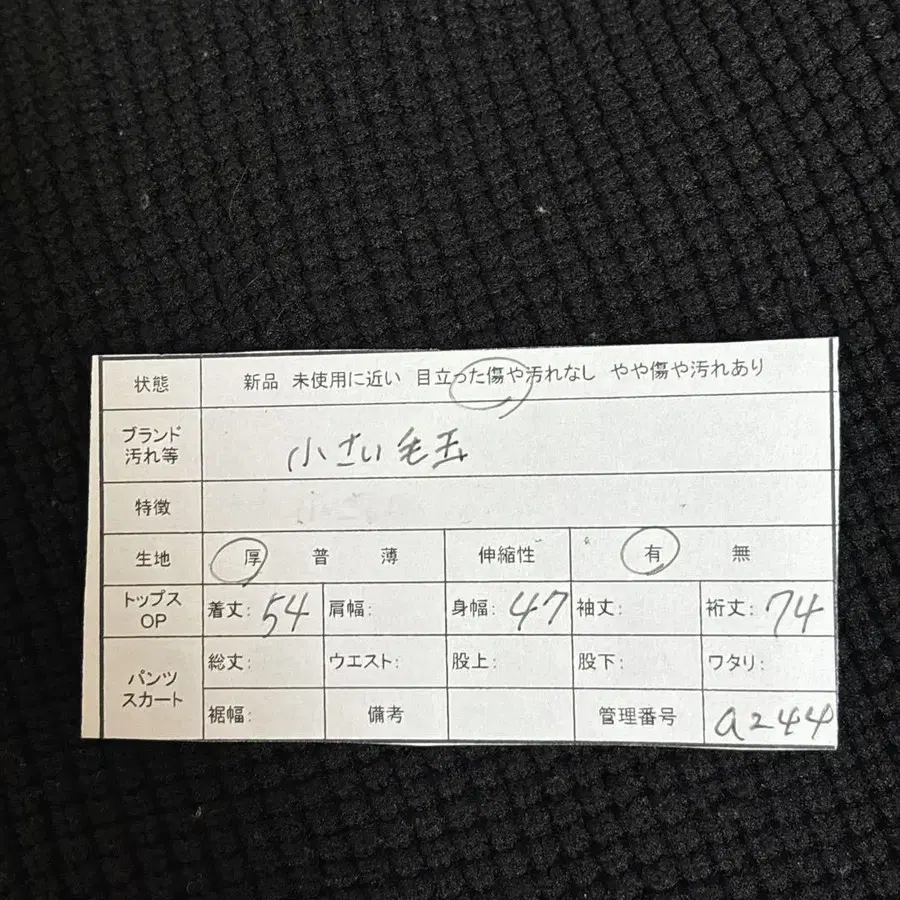 状態 新品 未使用に近い 目立った傷や汚れなし やや傷や汚れあり
ブランド
汚れ等 小さい毛玉
特徴
生地 厚 普 薄 伸縮性 有 無
トップス
OP 着丈: 54 肩幅: 身幅: 47 袖丈: 裄丈: 74
パンツ
スカート
総丈: ウエスト: 股上: 股下: ワタリ:
裾幅: 備考 管理番号 a244